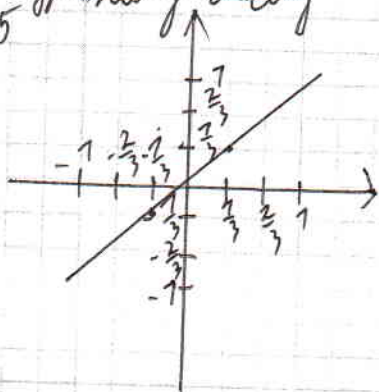 5
1
2/3
1/3
-1 -2/3 -1/3
1/3 2/3 1
-1/3
-2/3
-1